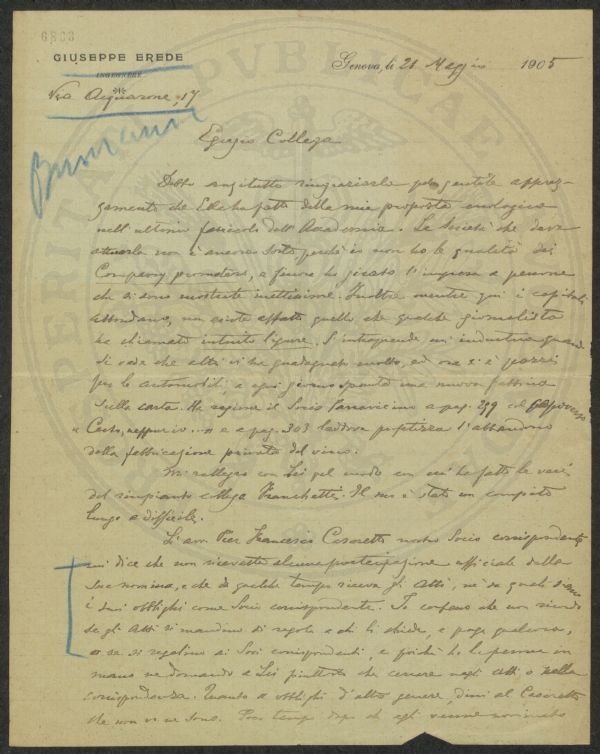 6803
GIUSEPPE EREDE
INGEGNERE
Via Acquasone, 17
Genova, li 21 Maggio 1905
Egregio Collega
Debbo anzitutto ringraziarla pel gentile apprez-
zamento che Ella ha fatto della mia proposta enologica
nell'ultimo fascicolo dell'Accademia. La Società che deve
attuarla non è ancora sorta perché io non ho le qualità dei
Company promoters, e finora ho [...] l'impresa a persone
che si sono mostrate inettissime. Inoltre mentre qui i capitali
abbondano, non esiste affatto quello che qualche giornalista
ha chiamato intuito ligure. S'intraprende un'industria quando
si vede che altri vi ha guadagnato molto, ed ora si è pazzi
per le automobili, e ogni giorno spunta una nuova fabbrica
sulla carta. Ha ragione il Socio Parravicino a pag. 299 col
e a pag. 303 laddove profetizza l'abbandono
della fabbricazione privata del vino.
Mi rallegro con Lei pel modo con cui ha fatto le veci
del rimpianto collega Franchetti. Il suo è stato un compito
lungo e difficile.
Il sig. Pier Francesco Casaretto nostro Socio corrispondente
mi dice che non ricevette alcuna partecipazione ufficiale della
sua nomina, e che da qualche tempo riceve gli Atti, né sa quali siano
i suoi obblighi come Socio corrispondente. Io confesso che non ricordo
se gli Atti si mandino di regola a chi li chiede, e paga qualcosa,
o se si regalino ai Soci corrispondenti, e poiché ho la penna in
mano ne domando a Lei piuttosto che cercare negli Atti o nella
corrispondenza. Quanto a obblighi d'altro genere, dissi al Casaretto
che non ve ne sono. Poco tempo dopo che egli venne nominato